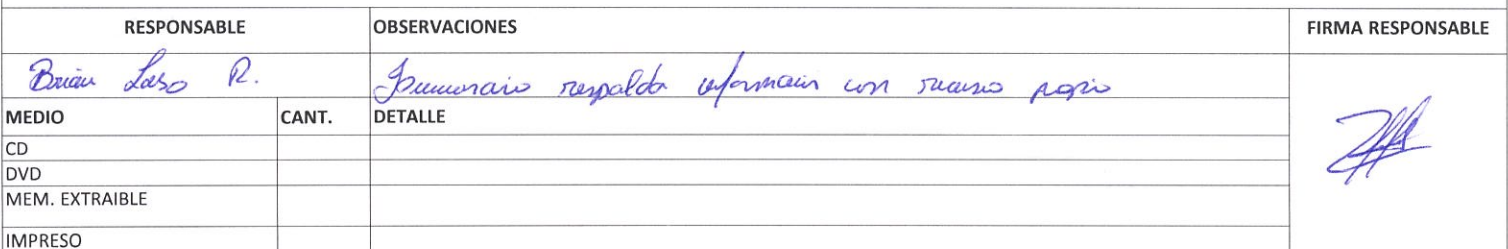 RESPONSABLE OBSERVACIONES FIRMA RESPONSABLE
Brian Laso R. Funcionario respalda información con recurso propio
MEDIO CANT. DETALLE
CD
DVD
MEM. EXTRAIBLE
IMPRESO